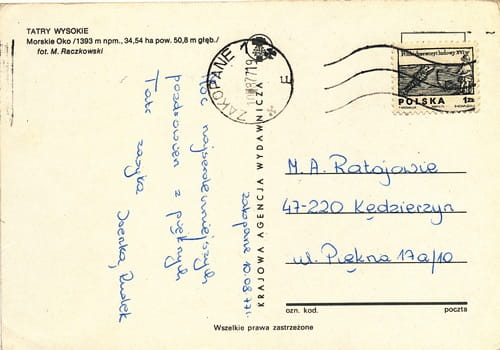 TATRY WYSOKIE
Morskie Oko /1393 m npm., 34,54 ha pow. 50,8 m głęb./
fot. M. Raczkowski
ZAKOPANE 1
POLSKA 1zł
Moc najserdeczniejszych
pozdrowień z pięknych
Tatr zasyła
Zakopane 10.08.77r.
KRAJOWA AGENCJA WYDAWNICZA
M. A. Ratajowie
47-220 Kędzierzyn
ul. Piękna 17a/10
ozn. kod. poczta
Wszelkie prawa zastrzeżone